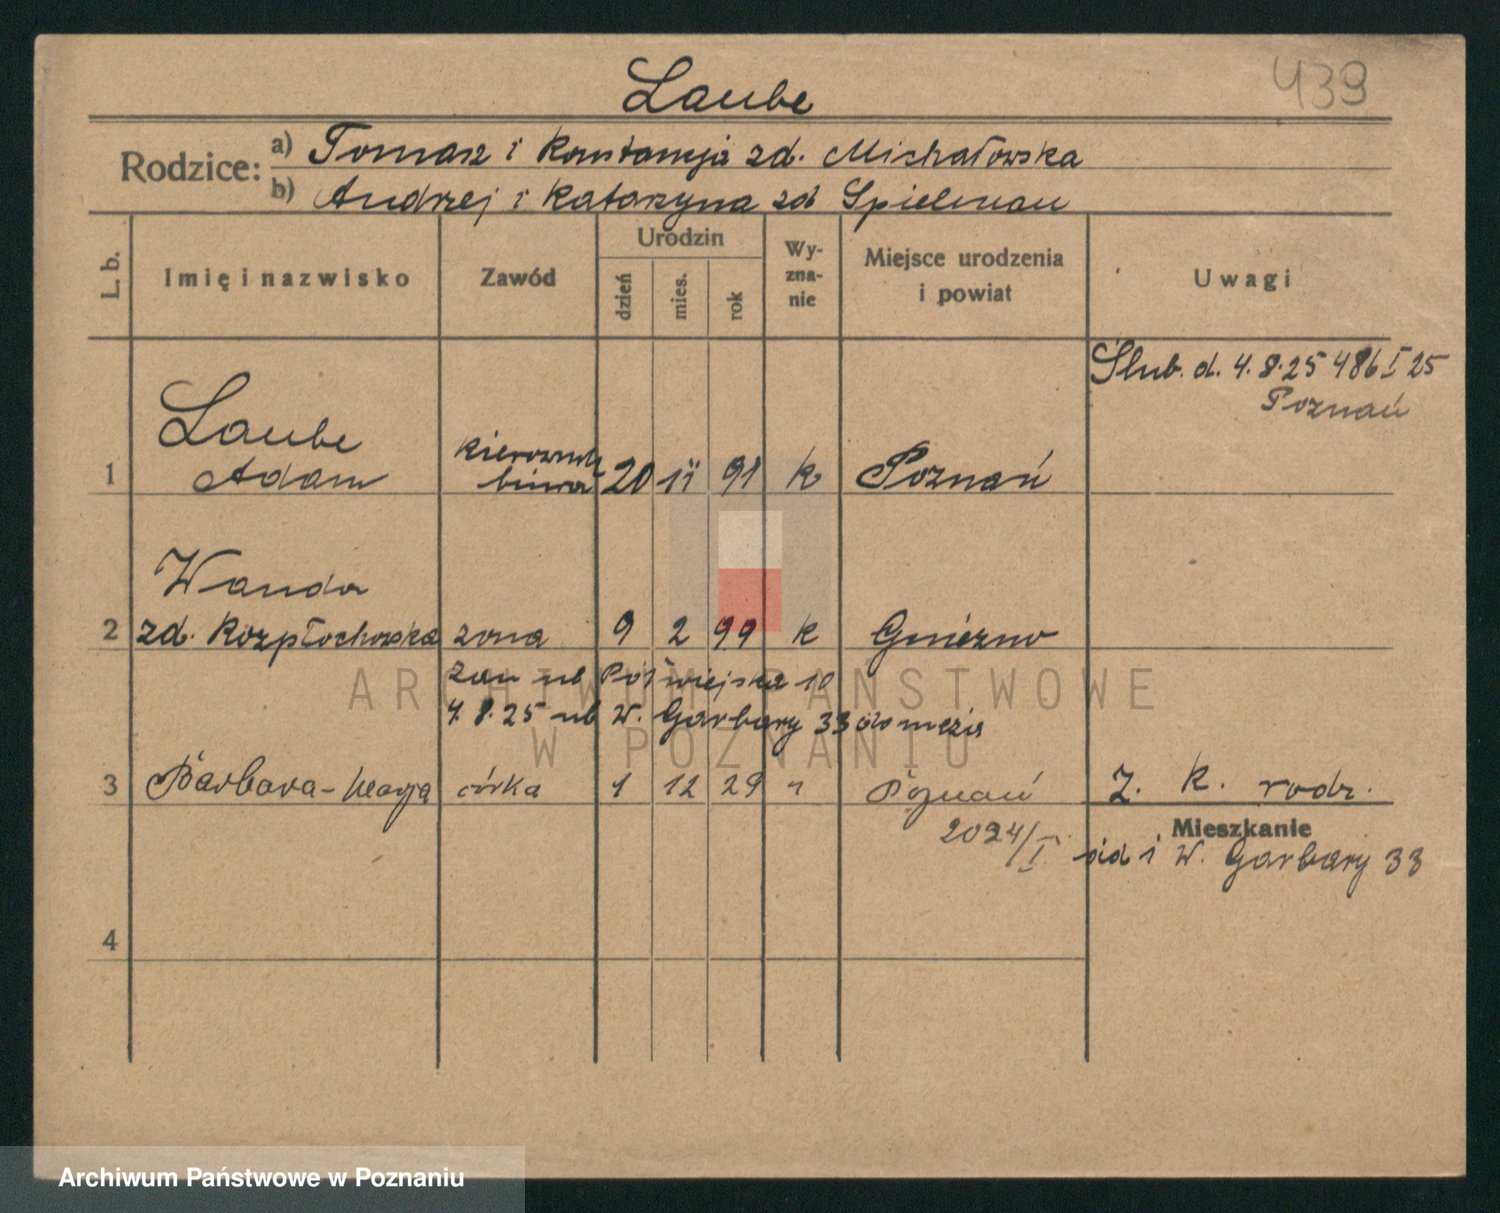 439
Laube
Rodzice: a) Tomasz i Konstancja zd. Michałowska
b) Andrzej i Katarzyna zd Spielman
L. b. Imię i nazwisko Zawód Urodzin dzień mies. rok Wy-zna-nie Miejsce urodzenia i powiat Uwagi
Ślub. d. 4.8.25 486 I 25
Poznań
Laube
1 Adam kierownik biura 20 11 91 k Poznań
Wanda
2 zd. Rozpłochowska żona 9 2 99 k Gniezno
zam ul Półwiejska 10
4.8.25 ul W. Garbary 33 do męża
3 Barbara-Marja córka 1 12 29 " Poznań Z. k. rodz.
2024/I
Mieszkanie
W. Garbary 33
4
ARCHIWUM PAŃSTWOWE
W POZNANIU
Archiwum Państwowe w Poznaniu